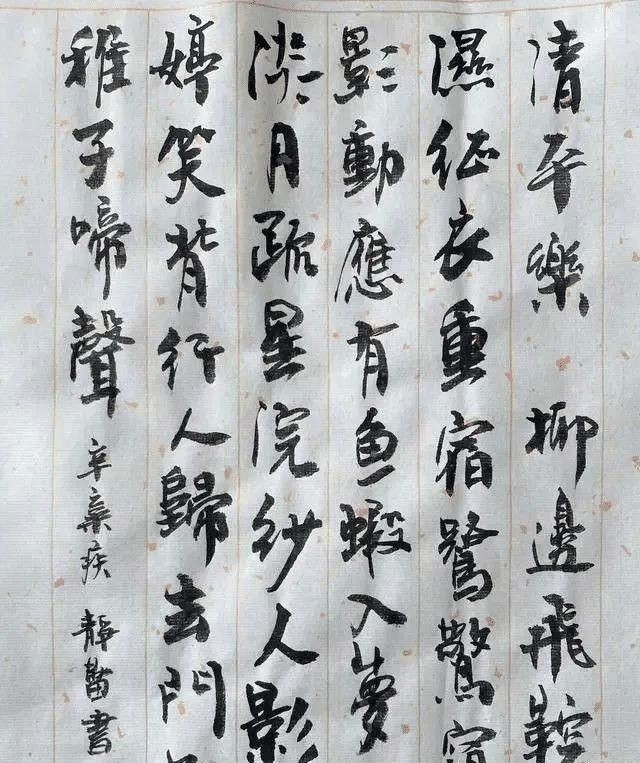 清平樂 柳邊飛鞚
濕征衣重宿鷺驚
影動應有鱼蝦入夢
淡月疏星浣紗人影
婷笑背行人歸去門
稚子啼聲 辛棄疾 靜書